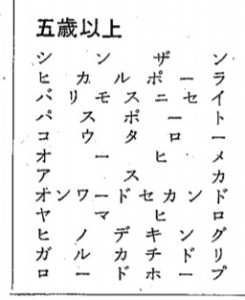 五歳以上
シンザン
ヒカルポーラ
バリモスニセイ
パスポート
コウタロー
オーヒメ
アスカ
オンワードセカンド
ヤマヒロ
ヒノデキング
ガルカチドリ
ロードホープ